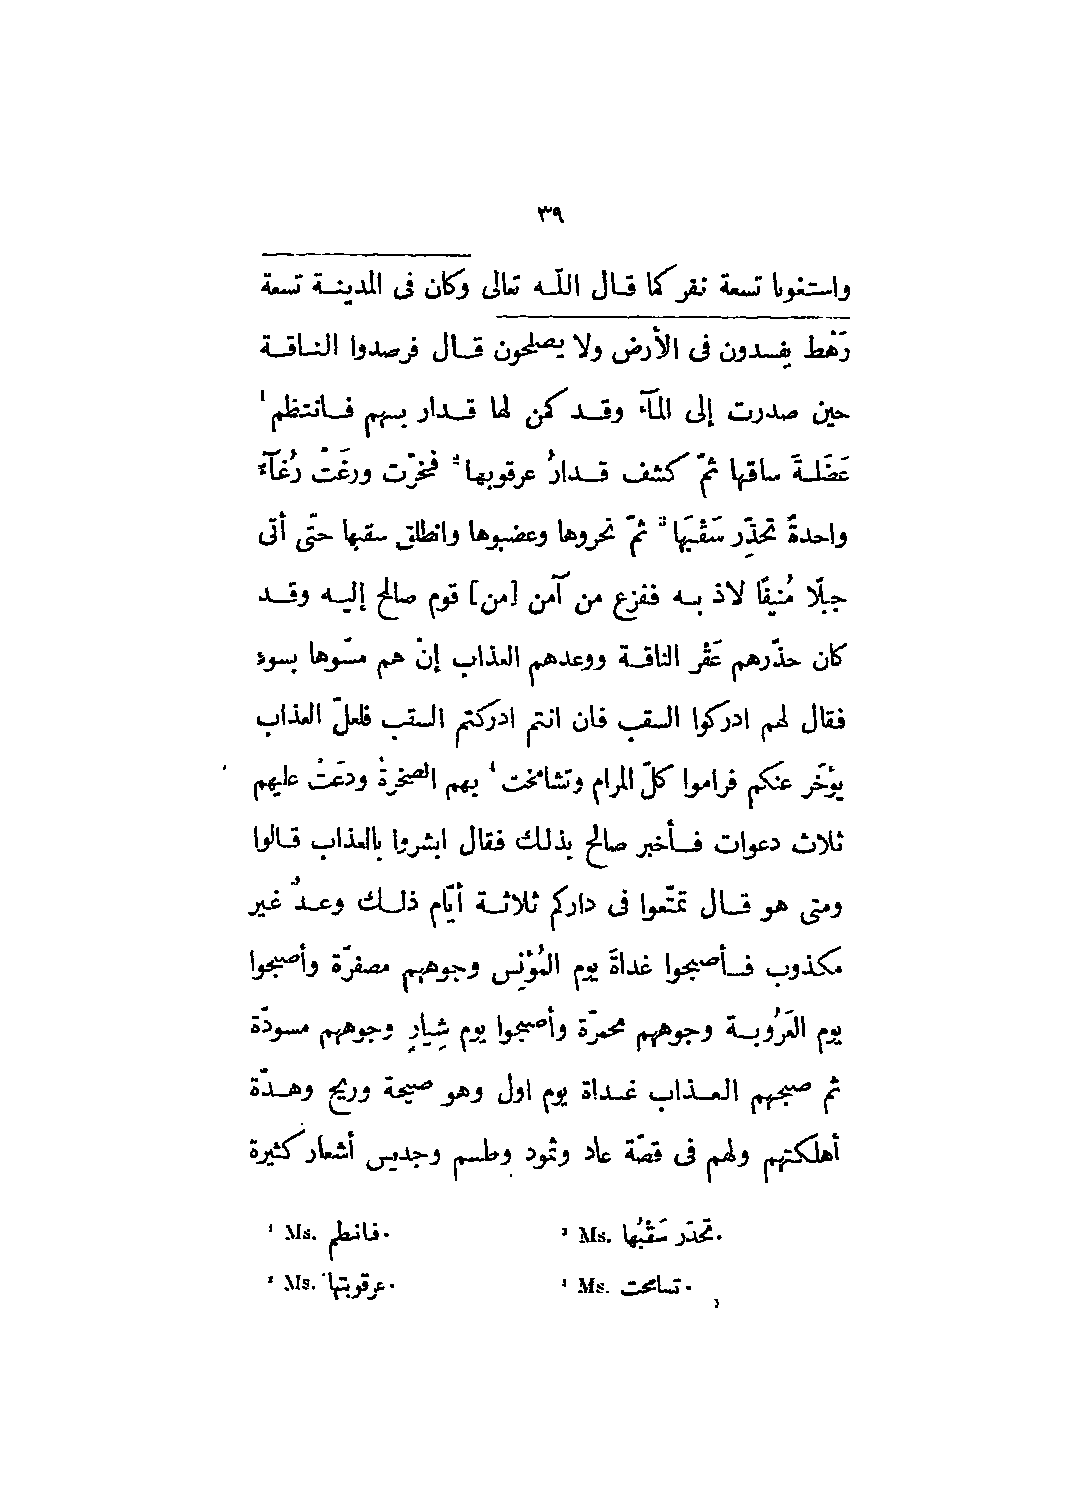 ٣٩
واستغويا تسعة نفر كما قال اللّه تعالى وكان فى المدينة تسعة
رَهْط يفسدون فى الأرض ولا يصلحون قال فرصدوا الناقة
حين صدرت إلى المآء وقد كمن لها قدار بسهم فانتظم¹
عَضَلةَ ساقها ثمّ كشف قدارُ عرقوبها² فخرّت ورغَتْ رُغآءً
واحدةً تحذِّر سَقْبَها³ ثمّ نحروها وعضبوها وانطلق سقبها حتّى أتى
جبلًا مُنيفًا لاذ به ففزع من آمن [من] قوم صالح إليه وقد
كان حذّرهم عَقْر الناقة ووعدهم العذاب إنْ هم مسّوها بسوء
فقال لهم ادركوا السقب فان انتم ادركتم السقب فلعلّ العذاب
يؤخّر عنكم فراموا كلّ المرام وتشامخت⁴ بهم الصخرةُ ودعَتْ عليهم
ثلاث دعوات فأخبر صالح بذلك فقال ابشروا بالعذاب قالوا
ومتى هو قال تمتّعوا فى داركم ثلاثة أيّام ذلك وعدٌ غير
مكذوب فأصبحوا غداةَ يوم المُؤْنِس وجوههم مصفرّة وأصبحوا
يوم العَرُوبة وجوههم محمرّة وأصبحوا يوم شِيارٍ وجوههم مسودّة
ثم صبحهم العذاب غداة يوم اول وهو صيحة وريح وهدّة
أهلكتهم ولهم فى قصّة عاد وثمود وطسم وجديس أشعار كثيرة
¹ Ms. فانطم.
³ Ms. تَحذّر سَقْبُها.
² Ms. عرقوبتها.
⁴ Ms. تسامحت.